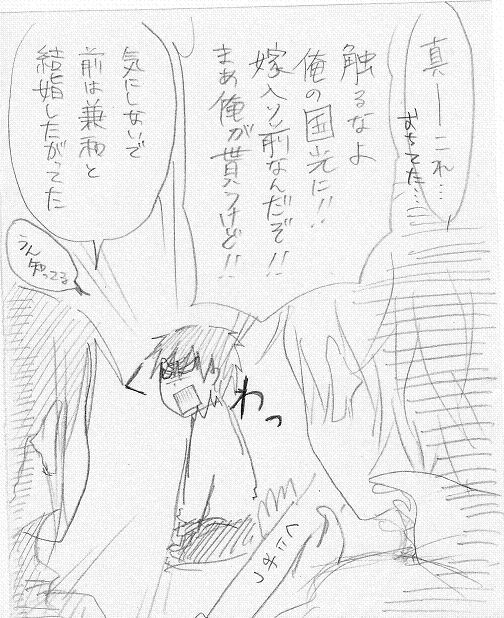 真ーこれ…
おちてた…
触るなよ
俺の国光に!!
嫁入り前なんだぞ!!
まあ俺が貰うけど!!
気にしないで
前は兼和と
結婚したがってた
うん
知ってる
わっ